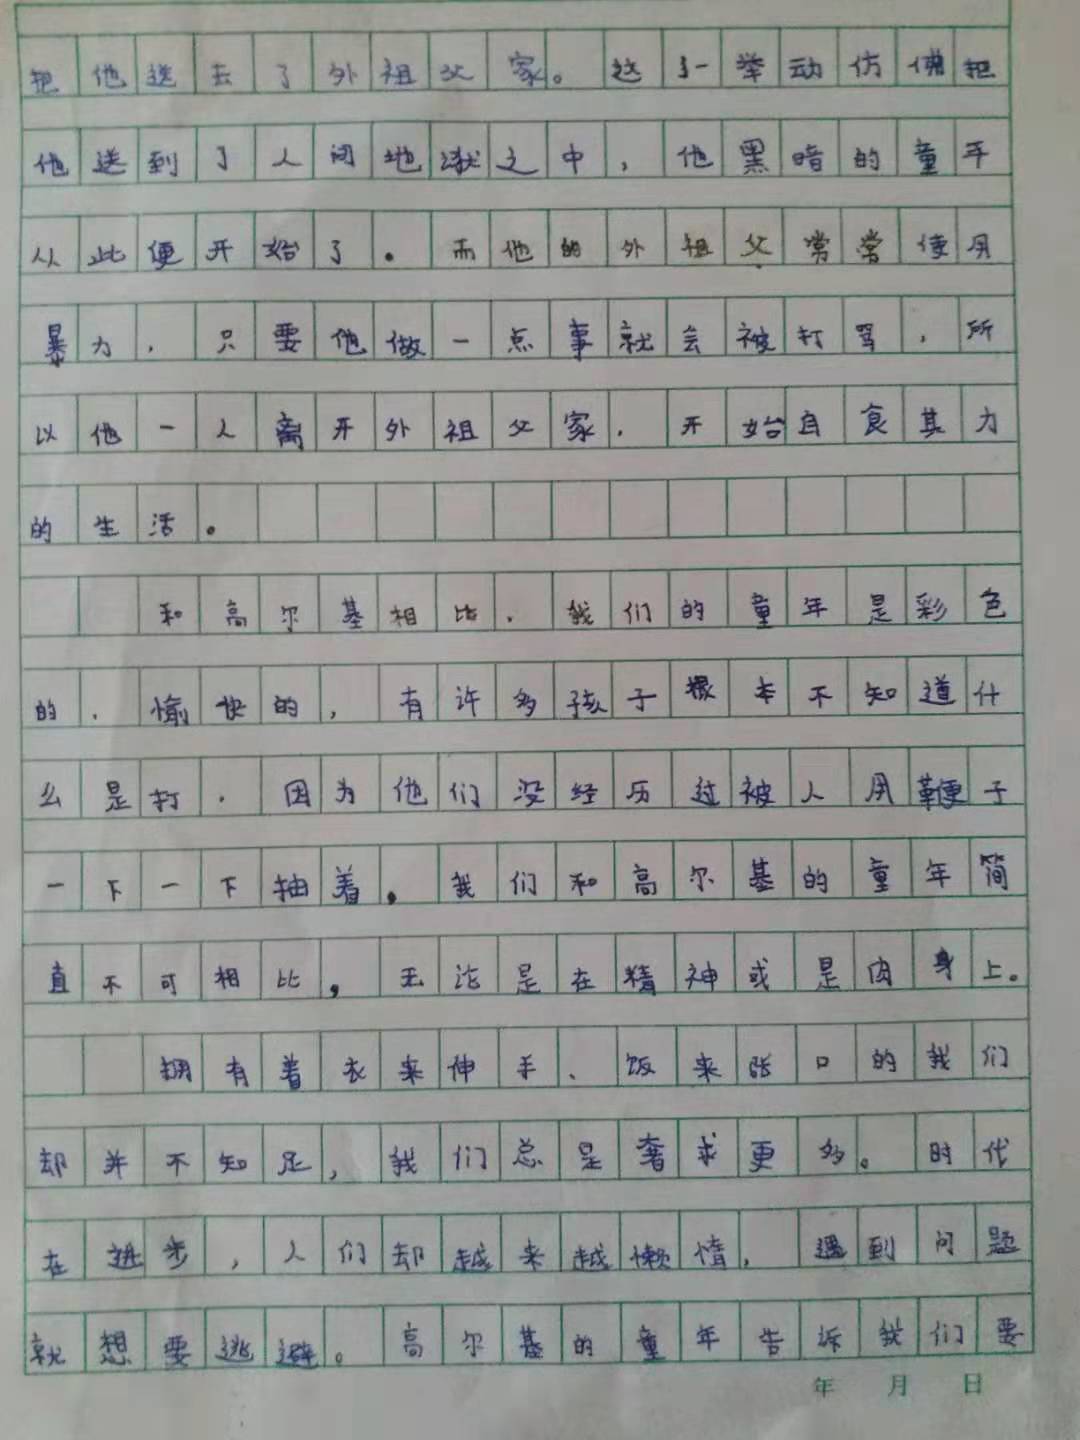 把他送去了外祖父家。这了一举动仿佛把
他送到了人间地狱之中，他黑暗的童年
从此便开始了。而他的外祖父常常使用
暴力，只要他做一点事就会被打骂，所
以他一人离开外祖父家，开始自食其力
的生活。
和高尔基相比，我们的童年是彩色
的，愉快的，有许多孩子根本不知道什
么是打，因为他们没经历过被人用鞭子
一下一下抽着。我们和高尔基的童年简
直不可相比，无论是在精神或是肉身上。
拥有着衣来伸手、饭来张口的我们
却并不知足，我们总是奢求更多。时代
在进步，人们却越来越懒惰，遇到问题
就想要逃避。高尔基的童年告诉我们要
年 月 日